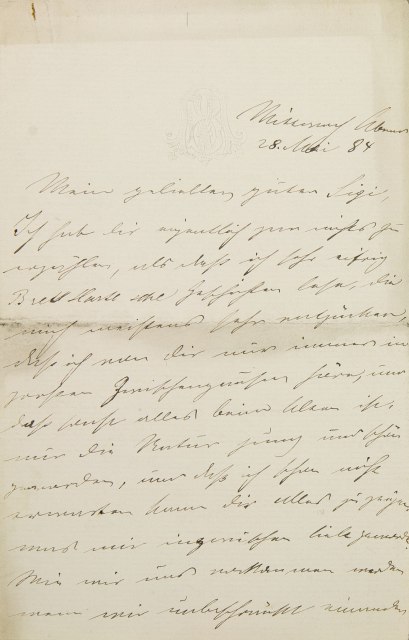 Mittwoch Abend
28. Mai 84
Mein geliebter guter Sigi,
Ich hab dir eigentlich gar nichts zu
erzählen, als daß ich sehr eifrig
Bret Harte'sche Geschichten lese, die
mich meistens sehr entzücken,
daß ich von dir nur immer in
großen Zwischen hören,
daß sonst alles beim Alten ist,
nur die Natur jung und schön
geworden, und daß ich schon nicht
erwarten kann dir alles zu zeigen
was mir inzwischen lieb geworden
Wie wir uns vorkommen werden
wenn wir unbeschränkt einander